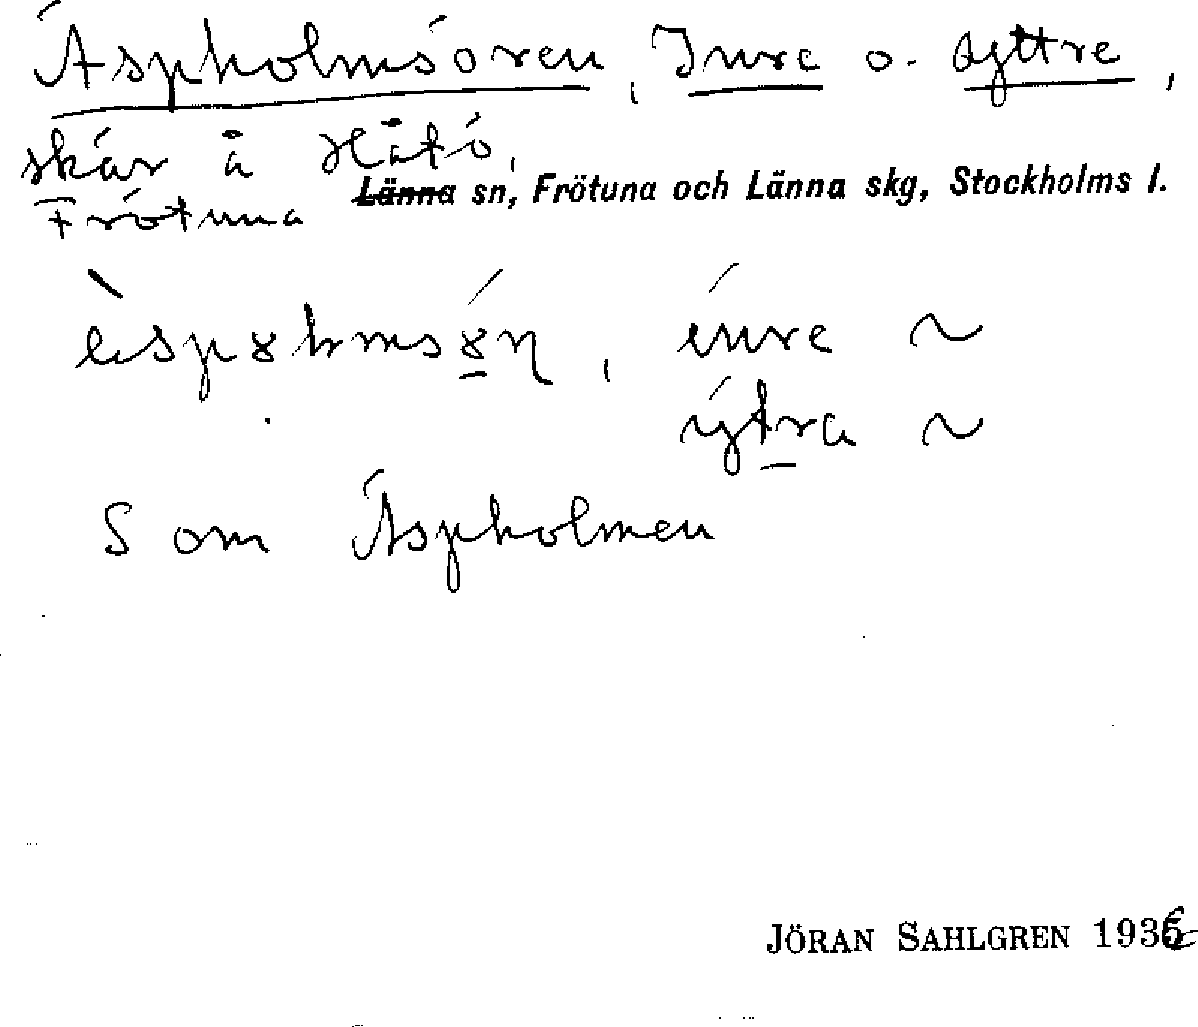 Äspholmsören, Inre o. Yttre,
skär å Håtö,
Frötuna Länna sn, Frötuna och Länna skg, Stockholms l.
inre ~
ýtra ~
S om Äspholmen
JÖRAN SAHLGREN 1936